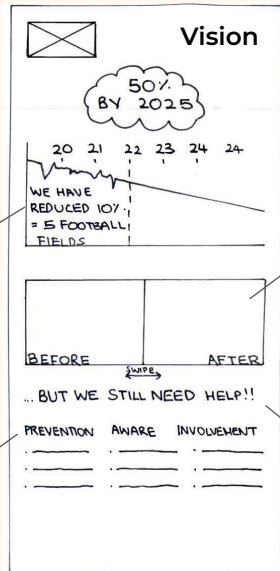 Vision
50%
BY 2025
20 21 22 23 24 24
WE HAVE
REDUCED 10%
= 5 FOOTBALL
FIELDS
BEFORE AFTER
SWIPE
... BUT WE STILL NEED HELP!!
PREVENTION AWARE INVOLVEMENT